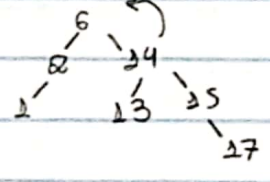 6
2 14
1 13 15
17